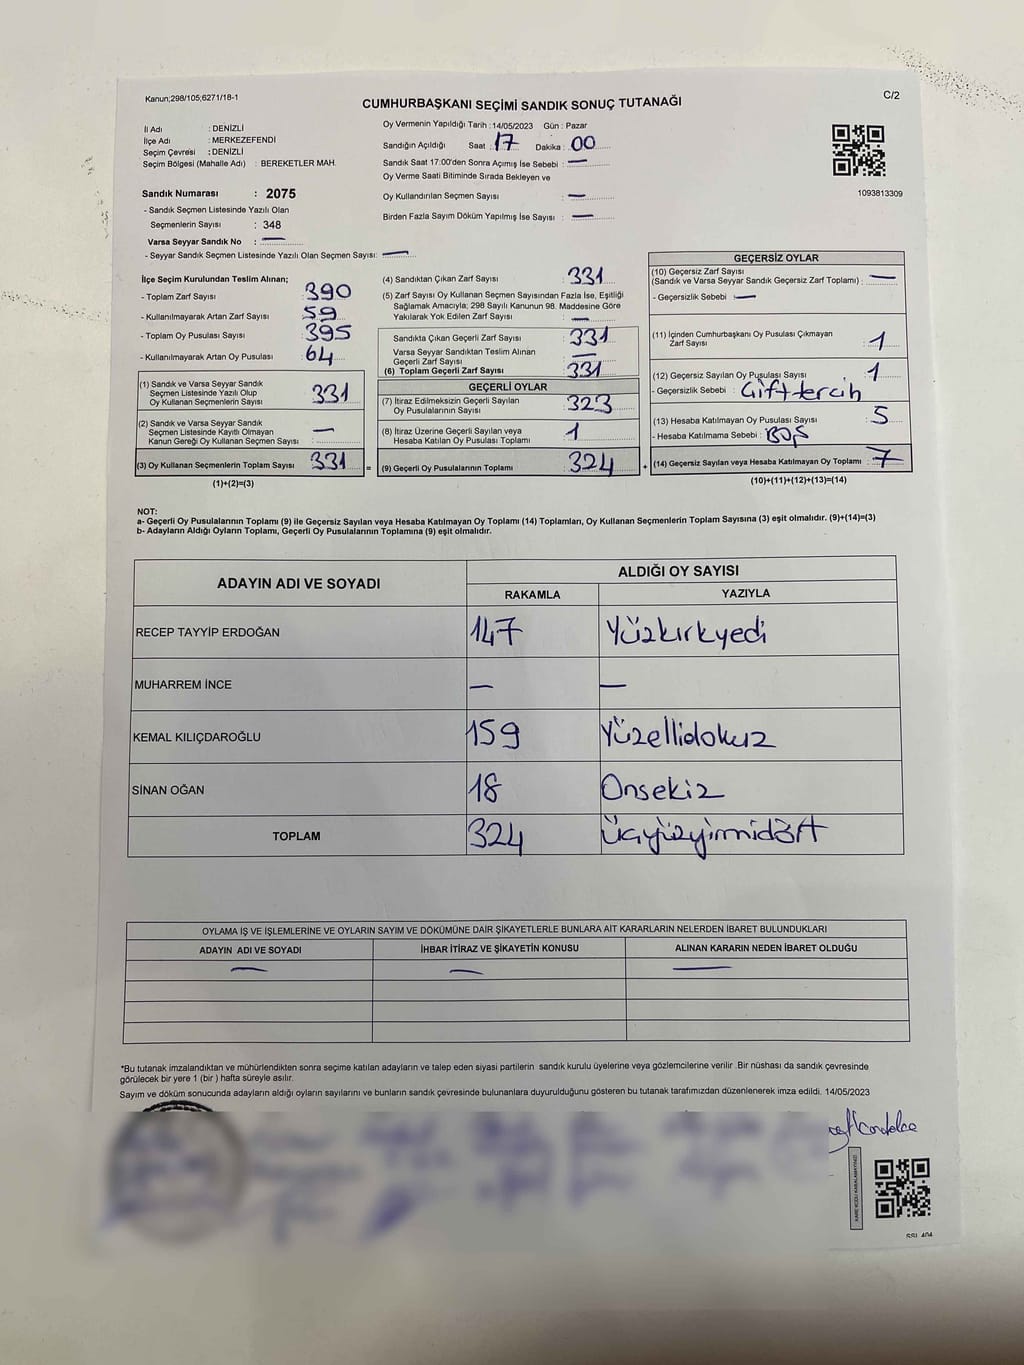 Kanun;298/105;6271/18-1
CUMHURBAŞKANI SEÇİMİ SANDIK SONUÇ TUTANAĞI
C/2
İl Adı : DENİZLİ
İlçe Adı : MERKEZEFENDİ
Seçim Çevresi : DENİZLİ
Seçim Bölgesi (Mahalle Adı) : BEREKETLER MAH.
Sandık Numarası : 2075
- Sandık Seçmen Listesinde Yazılı Olan
Seçmenlerin Sayısı : 348
Varsa Seyyar Sandık No : —
- Seyyar Sandık Seçmen Listesinde Yazılı Olan Seçmen Sayısı: —
Oy Vermenin Yapıldığı Tarih : 14/05/2023 Gün : Pazar
Sandığın Açıldığı Saat : 17 Dakika : 00
Sandık Saat 17:00'den Sonra Açımış İse Sebebi : —
Oy Verme Saati Bitiminde Sırada Bekleyen ve
Oy Kullandırılan Seçmen Sayısı : —
Birden Fazla Sayım Döküm Yapılmış İse Sayısı : —
1093813309
İlçe Seçim Kurulundan Teslim Alınan;
- Toplam Zarf Sayısı : 390
- Kullanılmayarak Artan Zarf Sayısı : 59
- Toplam Oy Pusulası Sayısı : 395
- Kullanılmayarak Artan Oy Pusulası : 64
(1) Sandık ve Varsa Seyyar Sandık
Seçmen Listesinde Yazılı Olup
Oy Kullanan Seçmenlerin Sayısı : 331
(2) Sandık ve Varsa Seyyar Sandık
Seçmen Listesinde Kayıtlı Olmayan
Kanun Gereği Oy Kullanan Seçmen Sayısı : —
(3) Oy Kullanan Seçmenlerin Toplam Sayısı : 331 =
(1)+(2)=(3)
(4) Sandıktan Çıkan Zarf Sayısı : 331
(5) Zarf Sayısı Oy Kullanan Seçmen Sayısından Fazla İse, Eşitliği
Sağlamak Amacıyla; 298 Sayılı Kanunun 98. Maddesine Göre
Yakılarak Yok Edilen Zarf Sayısı : —
Sandıkta Çıkan Geçerli Zarf Sayısı : 331
Varsa Seyyar Sandıktan Teslim Alınan
Geçerli Zarf Sayısı : —
(6) Toplam Geçerli Zarf Sayısı : 331
GEÇERLİ OYLAR
(7) İtiraz Edilmeksizin Geçerli Sayılan
Oy Pusulalarının Sayısı : 323
(8) İtiraz Üzerine Geçerli Sayılan veya
Hesaba Katılan Oy Pusulası Toplamı : 1
(9) Geçerli Oy Pusulalarının Toplamı : 324 +
GEÇERSİZ OYLAR
(10) Geçersiz Zarf Sayısı
(Sandık ve Varsa Seyyar Sandık Geçersiz Zarf Toplamı) : —
- Geçersizlik Sebebi : —
(11) İçinden Cumhurbaşkanı Oy Pusulası Çıkmayan
Zarf Sayısı : 1
(12) Geçersiz Sayılan Oy Pusulası Sayısı : 1
- Geçersizlik Sebebi : Çift tercih
(13) Hesaba Katılmayan Oy Pusulası Sayısı : 5
- Hesaba Katılmama Sebebi : Boş
(14) Geçersiz Sayılan veya Hesaba Katılmayan Oy Toplamı : 7
(10)+(11)+(12)+(13)=(14)
NOT:
a- Geçerli Oy Pusulalarının Toplamı (9) ile Geçersiz Sayılan veya Hesaba Katılmayan Oy Toplamı (14) Toplamları, Oy Kullanan Seçmenlerin Toplam Sayısına (3) eşit olmalıdır. (9)+(14)=(3)
b- Adayların Aldığı Oyların Toplamı, Geçerli Oy Pusulalarının Toplamına (9) eşit olmalıdır.
ADAYIN ADI VE SOYADI
ALDIĞI OY SAYISI
RAKAMLA YAZIYLA
RECEP TAYYİP ERDOĞAN 147 Yüzkırkyedi
MUHARREM İNCE — —
KEMAL KILIÇDAROĞLU 159 Yüzellidokuz
SİNAN OĞAN 18 Onsekiz
TOPLAM 324 Üçyüzyirmidört
OYLAMA İŞ VE İŞLEMLERİNE VE OYLARIN SAYIM VE DÖKÜMÜNE DAİR ŞİKAYETLERLE BUNLARA AİT KARARLARIN NELERDEN İBARET BULUNDUKLARI
ADAYIN ADI VE SOYADI İHBAR İTİRAZ VE ŞİKAYETİN KONUSU ALINAN KARARIN NEDEN İBARET OLDUĞU
— — —
*Bu tutanak imzalandıktan ve mühürlendikten sonra seçime katılan adayların ve talep eden siyasi partilerin sandık kurulu üyelerine veya gözlemcilerine verilir .Bir nüshası da sandık çevresinde
görülecek bir yere 1 (bir ) hafta süreyle asılır.
Sayım ve döküm sonucunda adayların aldığı oyların sayılarını ve bunların sandık çevresinde bulunanlara duyurulduğunu gösteren bu tutanak tarafımızdan düzenlenerek imza edildi. 14/05/2023
KAREKODU KARALAMAYINIZ!